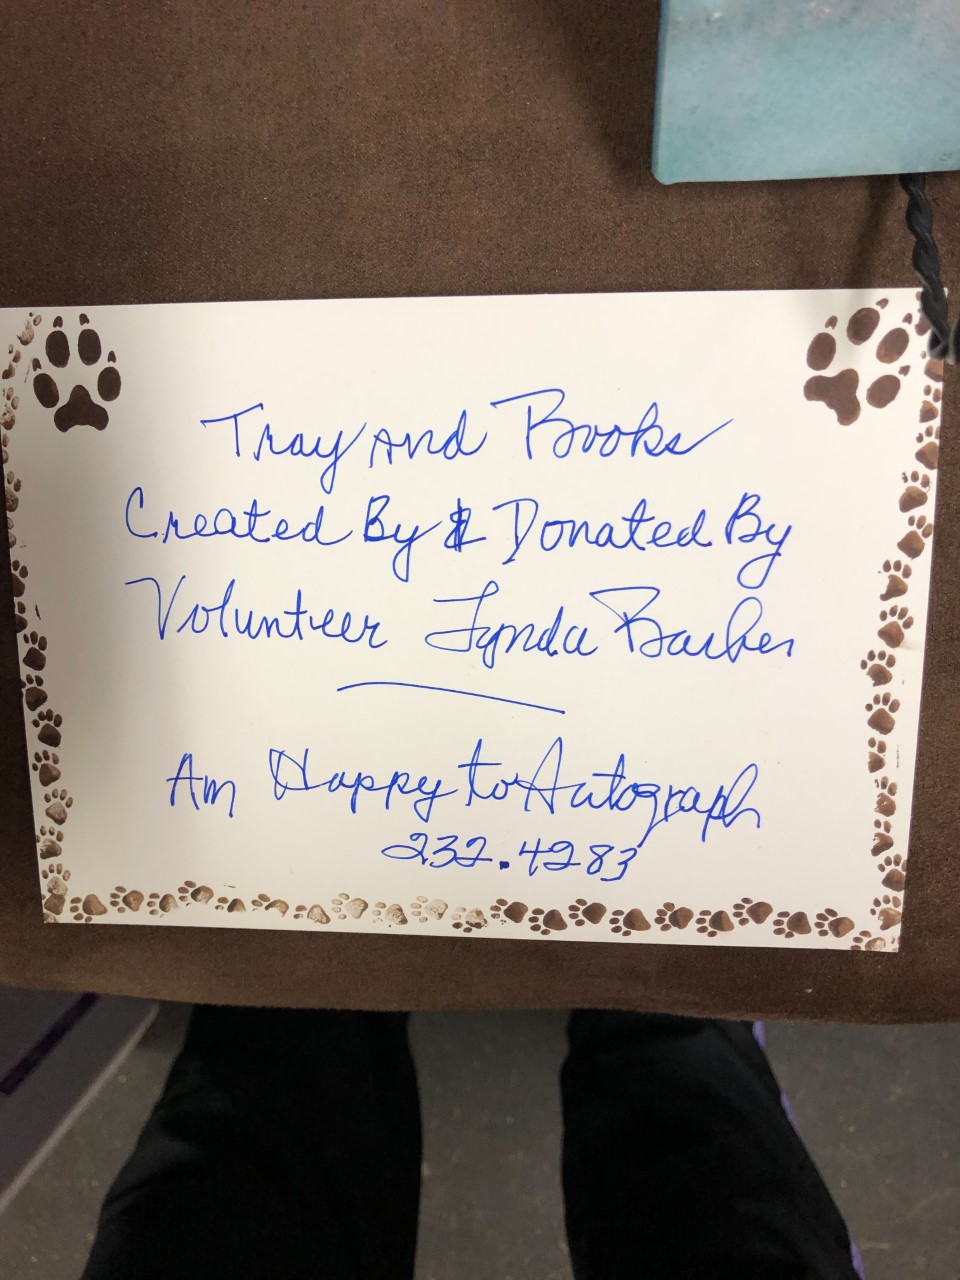 Tray And Books
Created By & Donated By
Volunteer Lynda Barber
Am Happy to Autograph
232.4283